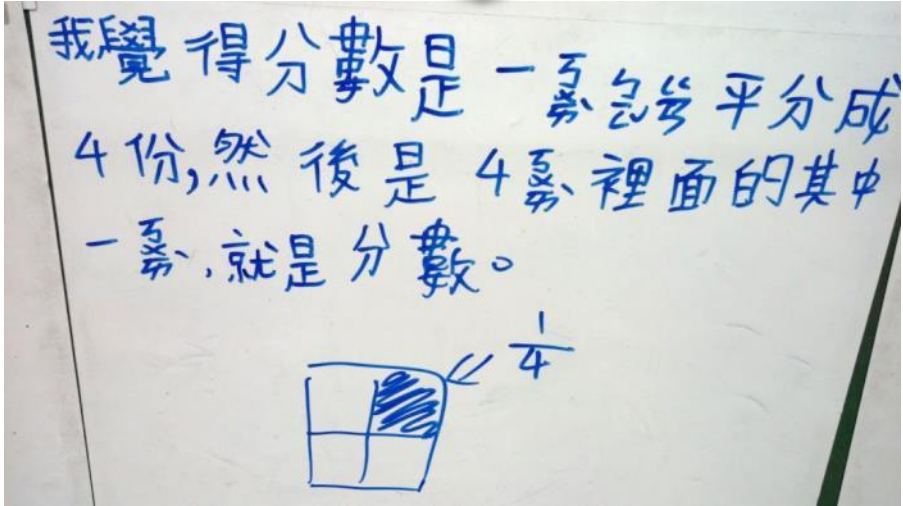 我覺得分數是一ㄎㄨㄞˋ平分成
4份,然後是4ㄎㄨㄞˋ裡面的其中
一ㄎㄨㄞˋ,就是分數。
1/4